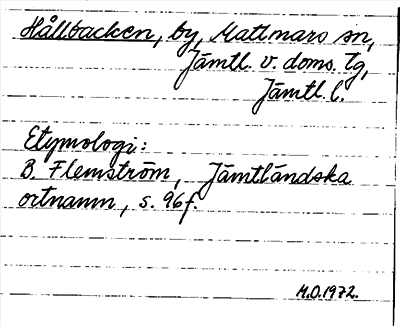 Hållbacken, by, Mattmars sn,
Jämtl. v. doms. tg,
Jämtl. l.
Etymologi:
B. Flemström, Jämtländska
ortnamn, s. 96f.
M.O.1972.